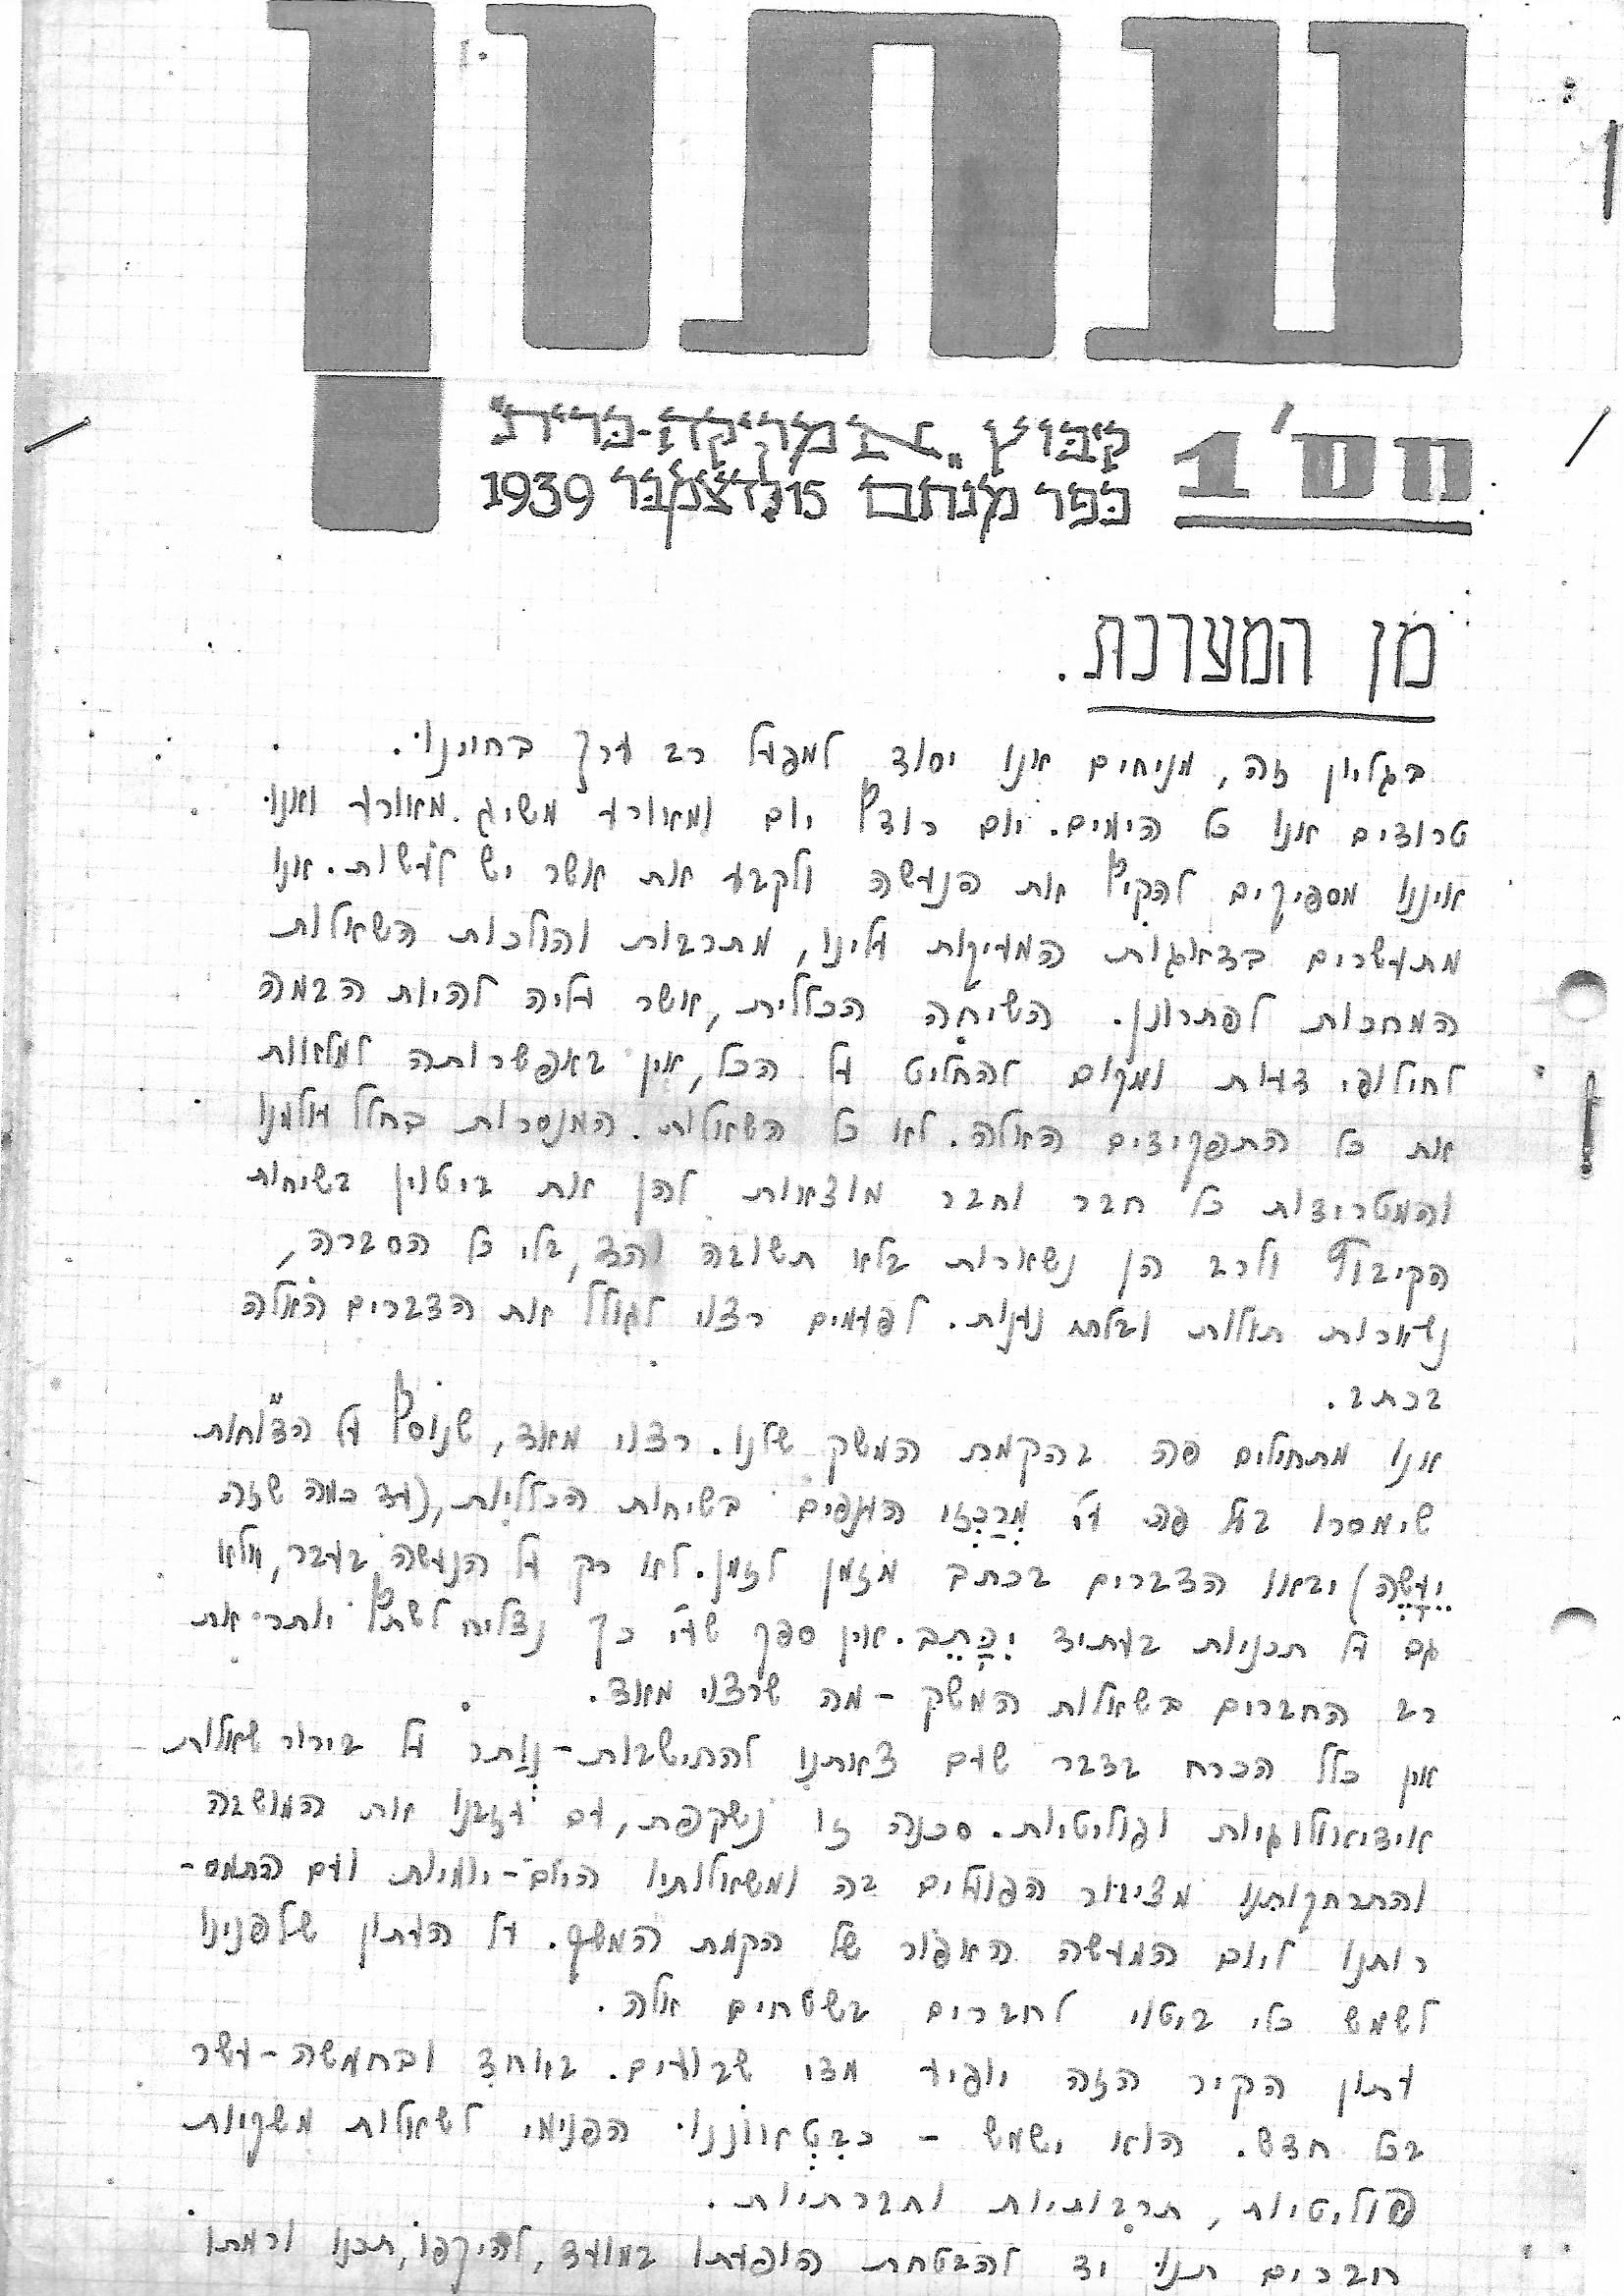 עתון
מס' 1 קיבוץ "אמריקה-ברית"
כפר מנחם 15 לדצמבר 1939
מן המערכת.
בגליון זה, מניחים אנו יסוד למפעל רב ערך בחיינו.
טרודים אנו כל הימים. יום רודף יום ומאורע משיג מאורע ואנו
איננו מספיקים להקיף את הנעשה ולקבע את אשר יש לעשות. אנו
מתעשרים בדאגות המעיקות עלינו, מתרבות והולכות השאלות
המחכות לפתרונן. השיחה הכללית, אשר עליה להיות הבמה
לחילופי דעות ומקום להחליט על הכל, אין באפשרותה למלאות
את כל התפקידים האלה. לא כל השאלות המנסרות בחלל עולמנו
והמטרידות כל חבר וחבר מוצאות להן את ביטוין בשיחות
הקיבוץ ולרב הן נשארות בלא תשובה והד, בלי כל הסברה,
נשארות תלויות ובלתי נענות. לפעמים רצוי לגולל את הדברים האלה
בכתב.
אנו מתחילים פה בהקמת המשק שלנו. רצוי מאד, שנוסף על הדו"חות
שימסרו בעל פה ע"י מרכזי הענפים בשיחות הכלליות, (עד כמה שזה
יעשה) יבואו הדברים בכתב מזמן לזמן. לא רק על הנעשה בעבר, אלא
גם על תכניות בעתיד יכתב. אין ספק שע"י כך נצליח לשתף יותר את
רב החברים בשאלות המשק - מה שרצוי מאד.
אין כלל הכרח בדבר שעם צאתנו להתישבות - נותר על בירור שאלות
אידיאולוגיות ופוליטיות. סכנה זו נשקפת, עם עזבנו את המושבה
והתרחקותנו מציבור הפועלים בה ומשאלותיו היום-יומיות ועם התמס-
רותנו ליום המעשה האפור של הקמת המשק. על העתון שלפנינו
לשמש כלי ביטוי לחברים בשטחים אלה.
עתון הקיר הזה יופיע מדי שבועים. באחד ובחמשה-עשר
בכל חדש. הוא ישמש - כבטאוננו הפנימי לשאלות משקיות
פוליטיות, תרבותיות וחברתיות.
חברים תנו יד להבטחת הופעתו במועד, להיקפו, תכנו ורמתו